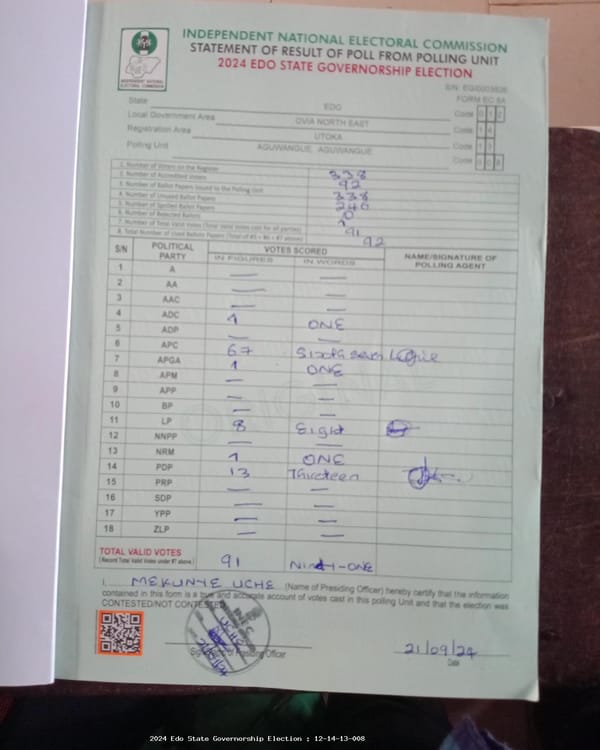 INDEPENDENT NATIONAL ELECTORAL COMMISSION
STATEMENT OF RESULT OF POLL FROM POLLING UNIT
2024 EDO STATE GOVERNORSHIP ELECTION
INDEPENDENT NATIONAL ELECTORAL COMMISSION
FORM EC 8A
State EDO Code
Local Government Area OVIA NORTH EAST Code
Registration Area UTOKA Code
Polling Unit AGUWANGUE, AGUWANGUE Code
1. Number of Voters on the Register 338
2. Number of Accredited Voters 92
3. Number of Ballot Papers Issued to the Polling Unit 338
4. Number of Unused Ballot Papers 246
5. Number of Spoiled Ballot Papers 0
6. Number of Rejected Ballots 1
7. Number of Total Valid Votes (Total Valid Votes cast for all parties) 91
8. Total Number of Used Ballot Papers (Total of #5 + #6 + #7 above) 92
S/N POLITICAL PARTY VOTES SCORED NAME/SIGNATURE OF POLLING AGENT
IN FIGURES IN WORDS
1 A — —
2 AA — —
3 AAC — —
4 ADC 1 ONE
5 ADP — —
6 APC 67
7 APGA 1 ONE
8 APM — —
9 APP — —
10 BP — —
11 LP 8 Eight
12 NNPP — —
13 NRM 1 ONE
14 PDP 13 Thirteen
15 PRP — —
16 SDP — —
17 YPP — —
18 ZLP — —
TOTAL VALID VOTES 91 Ninety-ONE
(Record Total Valid Votes under #7 above)
I, MEKUNYE UCHE (Name of Presiding Officer) hereby certify that the information
contained in this form is a true and accurate account of votes cast in this polling Unit and that the election was
CONTESTED/NOT CONTESTED
INEC
UCHE
21/09/24
Signature of Presiding Officer
21/09/24
Date
2024 Edo State Governorship Election : 12-14-13-008